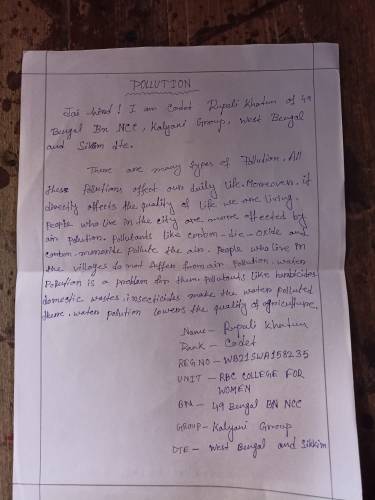 POLLUTION
Jai Hind! I am Cadet Rupali Khatun of 49
Bengal Bn NCC, Kalyani Group, West Bengal
and Sikkim dte.
There are many types of Pollution. All
these Pollutions affect our daily life. Moreover, it
directly affects the quality of life we are living.
People who live in the city are more affected by
air pollution. Pollutants like carbon-die-oxide and
carbon-monoxide pollute the air. People who live in
the villages do not suffer from air Pollution. Water
Pollution is a problem for them. Pollutants like harbicides
domestic wastes, insecticides make the water polluted
there. Water polution lowers the quality of agriculture.
Name - Rupali Khatun
Rank - Cadet
REG NO - WB21SWA158235
UNIT - RBC COLLEGE FOR
WOMEN
BN - 49 Bengal BN NCC
GROUP - Kalyani Group
DTE - West Bengal and Sikkim